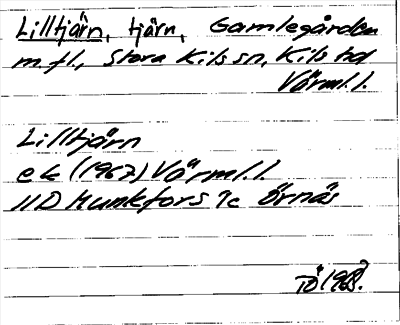 Lilltjärn, tjärn, Gamlegården
m.fl., Stora Kils sn, Kils hd
Värml. l.
Lilltjärn
ek (1967) Värml. l.
11D Munkfors 7c Örnäs
TÖ 1968.